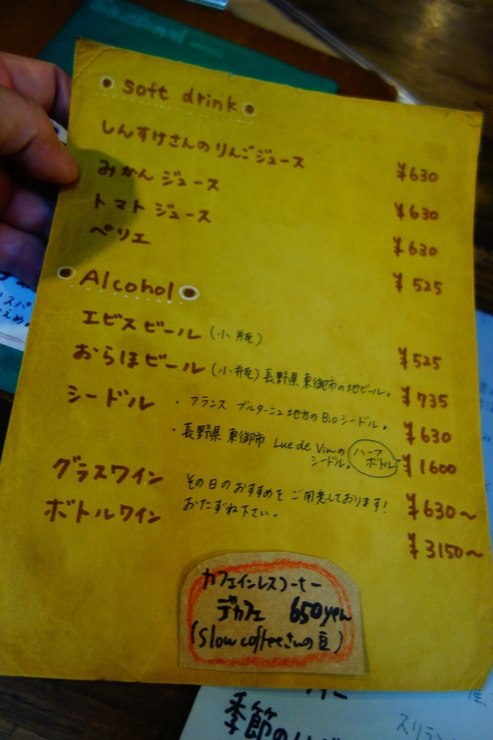 soft drink
しんすけさんのりんごジュース ¥630
みかんジュース ¥630
トマトジュース ¥630
ペリエ ¥525
Alcohol
エビスビール (小瓶) ¥525
おらほビール (小瓶) 長野県東御市の地ビール。 ¥735
シードル ・フランス ブルターニュ地方のBioシードル。 ¥630
・長野県東御市 Rue de Vinの シードル。 ハーフボトル ¥1600
グラスワイン その日のおすすめをご用意しております! ¥630〜
ボトルワイン おたずね下さい。 ¥3150〜
カフェインレスコーヒー
デカフェ 650yen
(Slow coffeeさんの豆)
季節の
スリラン